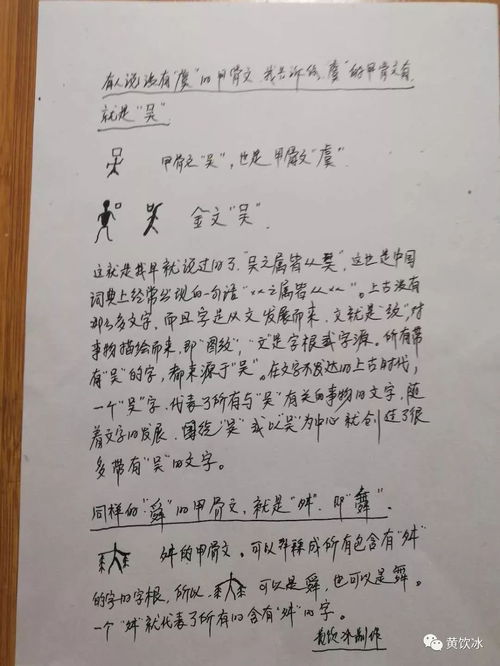 有人说没有“虞”的甲骨文，我告诉你，虞”的甲骨文有，
就是“吴”。
甲骨文“吴”，也是甲骨文“虞”。
金文“吴”。
这就是我早就说过的了“吴之属皆从吴”，这也是中国
词典上经常出现的一句话“××之属皆从××”。上古没有
那么多文字，而且字是从文发展而来，文就是“纹”，对
事物描绘而来，即“图纹”，“文”是字根或字源。所有带
有“吴”的字，都来源于“吴”。在文字不发达的上古时代，
一个“吴”字，代表了所有与“吴”有关的事物的文字，随
着文字的发展，围绕“吴”或以“吴”为中心就创造了很
多带有“吴”的文字。
同样的“舜”的甲骨文，就是“舛”，即“舞”。
舛的甲骨文。可以释成所有包含有“舛”
的字的字根，所以，可以是舜，也可以是舞。
一个“舛”就代表了所有的含有“舛”的字。
黄饮冰制作
黄饮冰